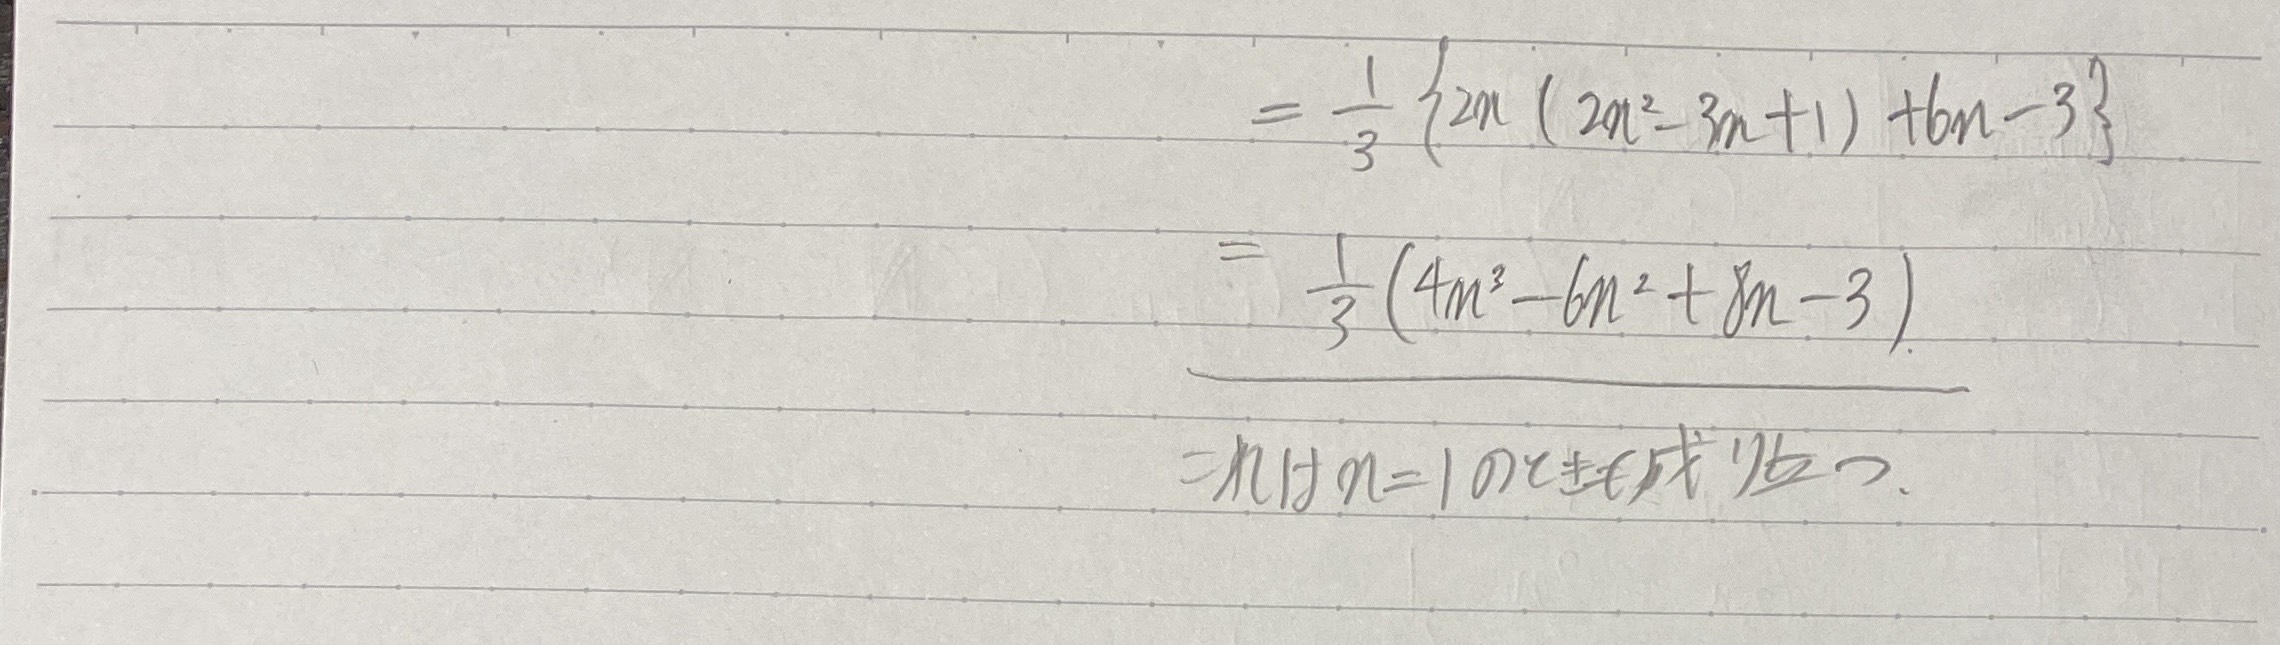 = 1/3 {2n (2n² - 3n + 1) + 6n - 3}
= 1/3 (4n³ - 6n² + 8n - 3).
これは n = 1 のときも成り立つ.